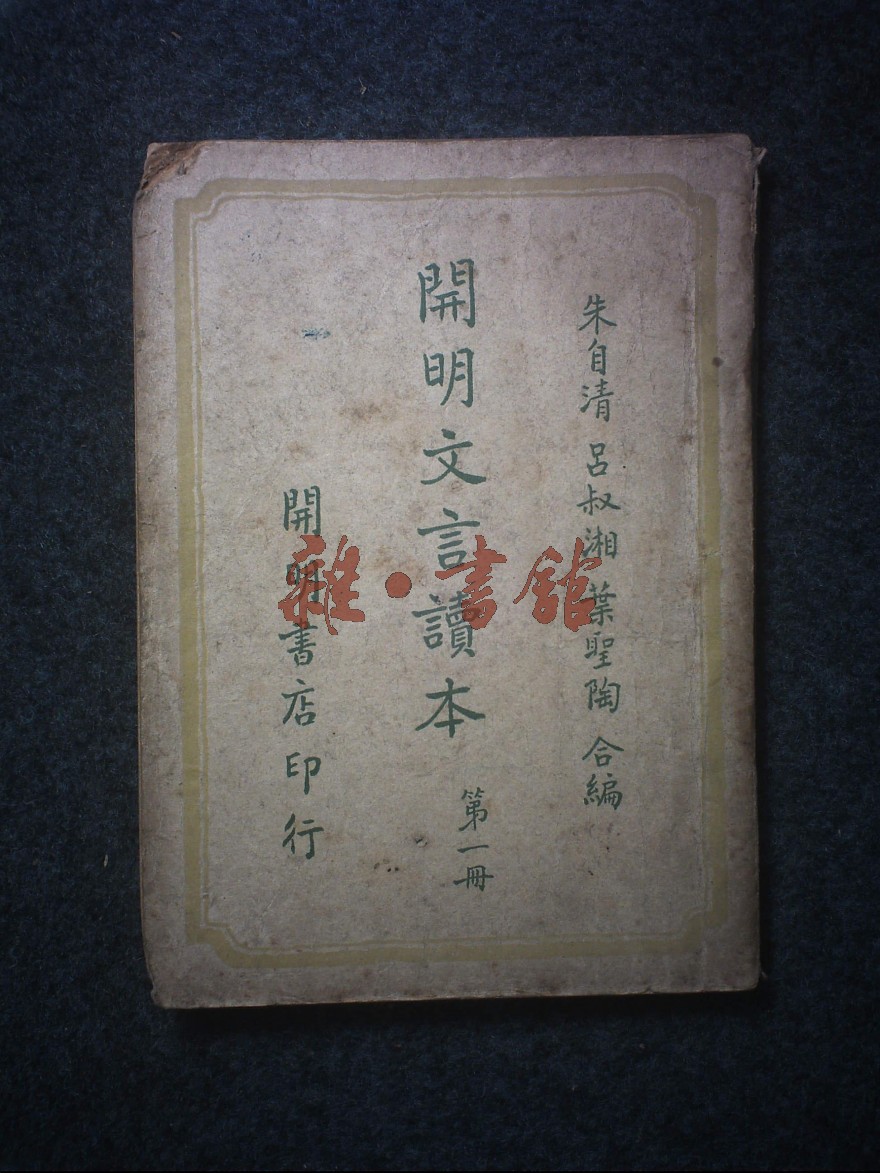 朱自清 呂叔湘 葉聖陶 合編
開明文言讀本
第一冊
開明書店印行
雜·書館